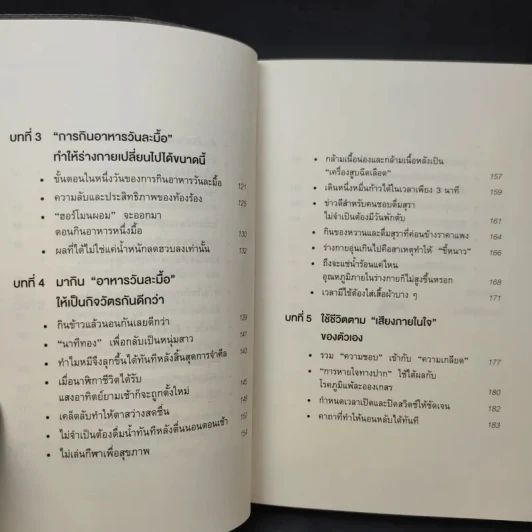 บทที่ 3 "การกินอาหารวันละมื้อ"
ทำให้ร่างกายเปลี่ยนไปได้ขนาดนี้
• ขั้นตอนในหนึ่งวันของการกินอาหารวันละมื้อ 121
• ความลับและประสิทธิภาพของท้องร้อง 125
• "ฮอร์โมนผอม" จะออกมา
ตอนกินอาหารหนึ่งมื้อ 130
• ผลที่ได้ไม่ใช่แค่น้ำหนักลดฮวบลงเท่านั้น 132
บทที่ 4 มากิน "อาหารวันละมื้อ"
ให้เป็นกิจวัตรกันดีกว่า
• กินข้าวแล้วนอนกันเลยดีกว่า 139
• "นาทีทอง" เพื่อกลับเป็นหนุ่มสาว 141
• ทำไมหมีจึงลุกขึ้นได้ทันทีหลังสิ้นสุดการจำศีล
• เมื่อนาฬิกาชีวิตได้รับ
แสงอาทิตย์ยามเช้าก็จะถูกตั้งใหม่ 145
• เคล็ดลับทำให้ตาสว่างสดชื่น 148
• ไม่จำเป็นต้องดื่มน้ำทันทีหลังตื่นนอนตอนเช้า
• ไม่เล่นกีฬาเพื่อสุขภาพ 154
• กล้ามเนื้อน่องและกล้ามเนื้อหลังเป็น
"เครื่องสูบฉีดเลือด" 157
• เดินหนึ่งหมื่นก้าวได้ในเวลาเพียง 3 นาที 159
• ข่าวดีสำหรับคนชอบดื่มสุรา
ไม่จำเป็นต้องมีวันพักตับ 161
• กินของหวานและดื่มสุราที่ค่อนข้างราคาแพง 164
• ร่างกายอุ่นเกินไปคือสาเหตุทำให้ "ขี้หนาว" 166
• ถึงจะแช่น้ำร้อนแค่ไหน
อุณหภูมิภายในร่างกายก็ไม่สูงขึ้นหรอก 168
• เวลามีไข้ต้องใส่เสื้อผ้าบาง ๆ 171
บทที่ 5 ใช้ชีวิตตาม "เสียงภายในใจ"
ของตัวเอง
• รวม "ความชอบ" เข้ากับ "ความเกลียด" 177
• "การหายใจทางปาก" ใช้ได้ผลกับ
โรคภูมิแพ้ละอองเกสร 180
• กำหนดเวลาเปิดและปิดสวิตช์ให้ชัดเจน 182
• คาถาที่ทำให้นอนหลับได้ทันที 183